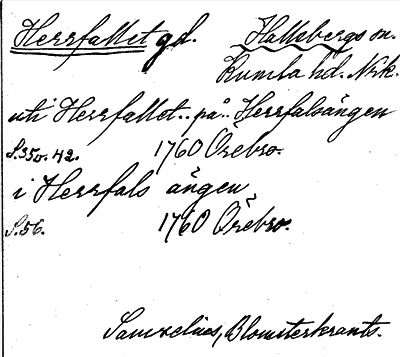 Herrfallet gd. Hallsbergs sn.
Kumla hd. Nrk.
uti Herrfallet.. på.. Herrfalsängen
S. 350. 42. 1760 Örebro.
i Herrfals ängen
S. 56. 1760 Örebro.
Samzelius, Blomsterkrants.